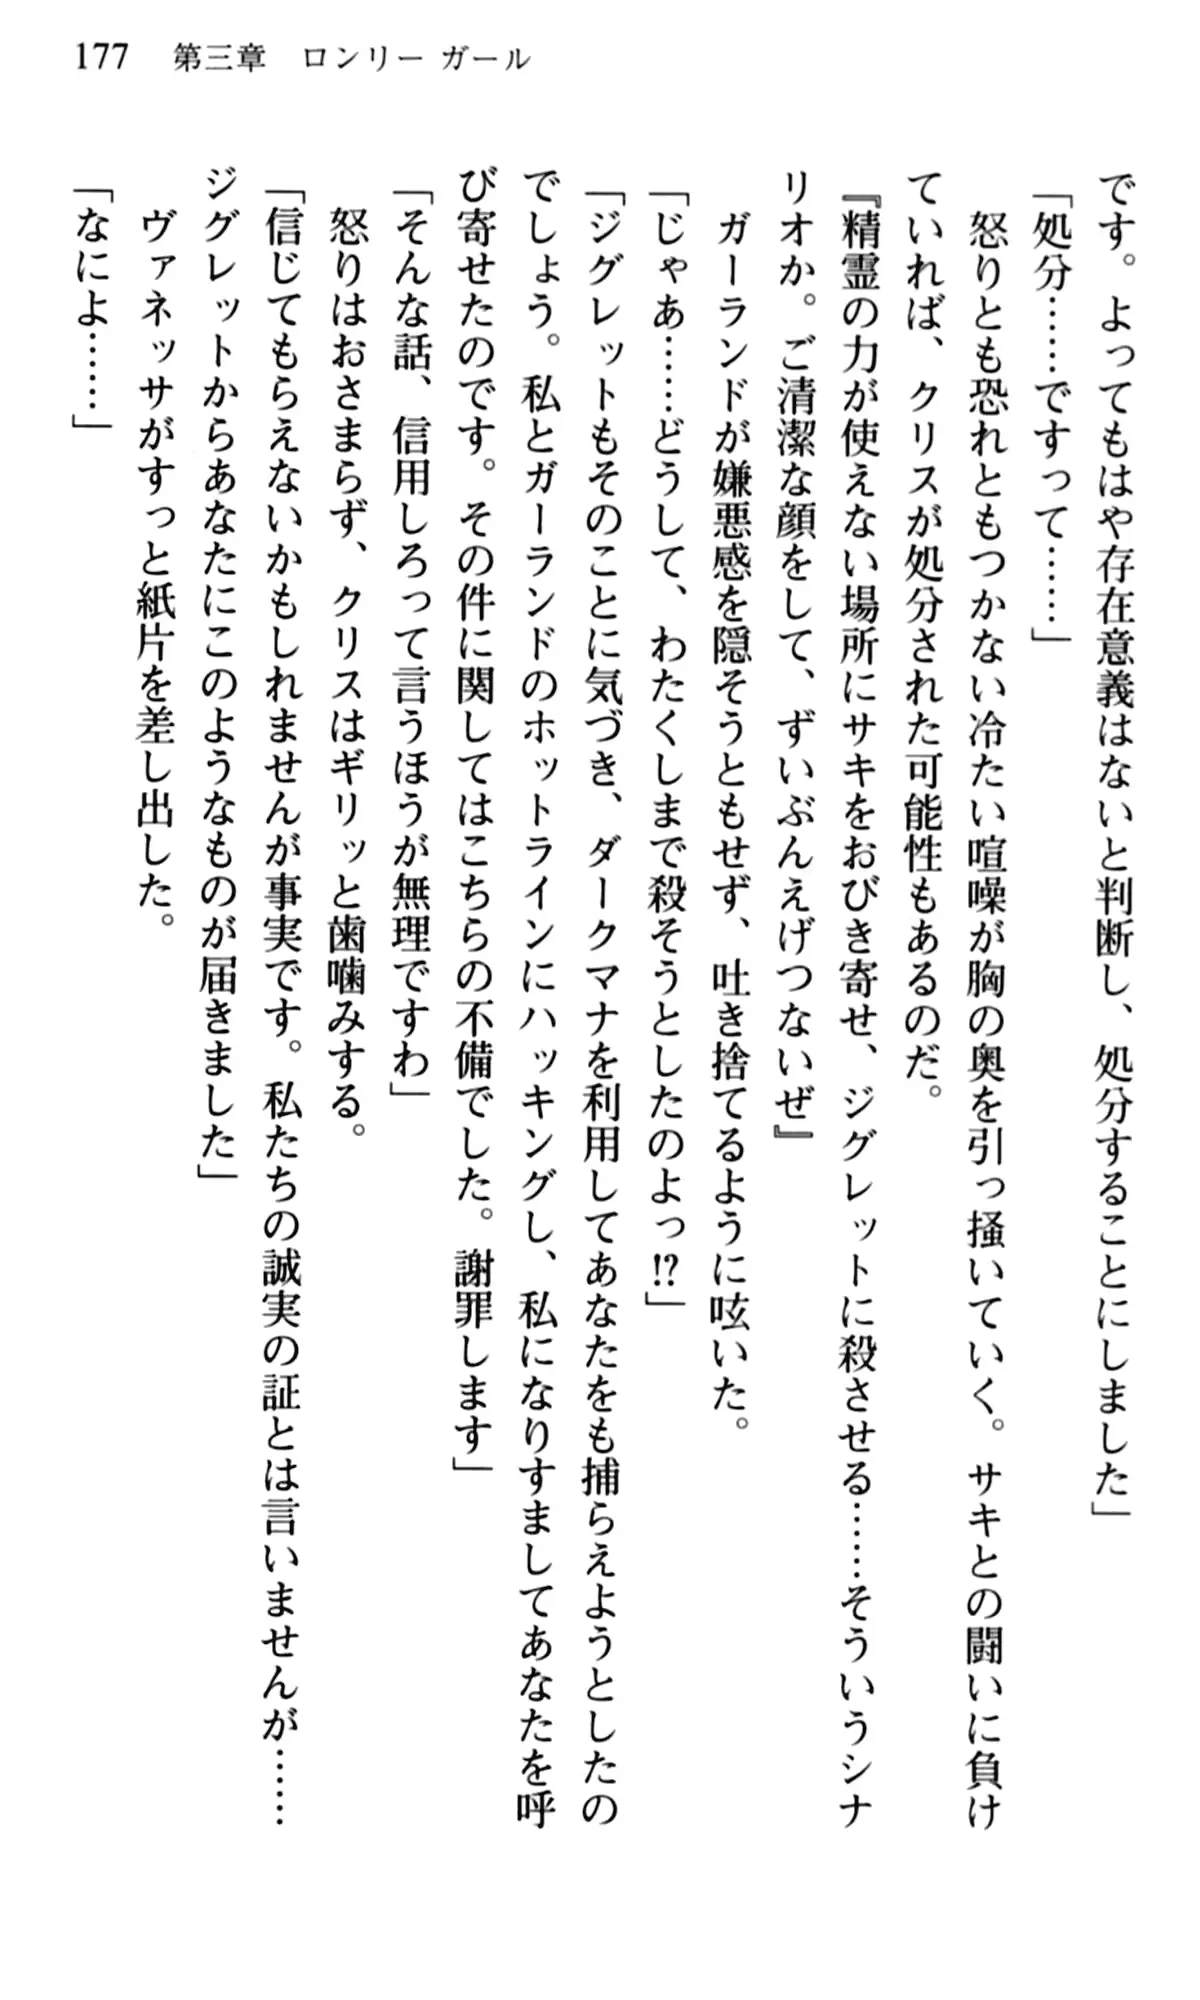 177　第三章　ロンリー ガール
です。よってもはや存在意義はないと判断し、処分することにしました」
「処分……ですって……」
　怒りとも恐れともつかない冷たい喧噪が胸の奥を引っ掻いていく。サキとの闘いに負け
ていれば、クリスが処分された可能性もあるのだ。
『精霊の力が使えない場所にサキをおびき寄せ、ジグレットに殺させる……そういうシナ
リオか。ご清潔な顔をして、ずいぶんえげつないぜ』
　ガーランドが嫌悪感を隠そうともせず、吐き捨てるように呟いた。
「じゃあ……どうして、わたくしまで殺そうとしたのよっ!?」
「ジグレットもそのことに気づき、ダークマナを利用してあなたをも捕らえようとしたの
でしょう。私とガーランドのホットラインにハッキングし、私になりすましてあなたを呼
び寄せたのです。その件に関してはこちらの不備でした。謝罪します」
「そんな話、信用しろって言うほうが無理ですわ」
　怒りはおさまらず、クリスはギリッと歯噛みする。
「信じてもらえないかもしれませんが事実です。私たちの誠実の証とは言いませんが……
ジグレットからあなたにこのようなものが届きました」
　ヴァネッサがすっと紙片を差し出した。
「なによ……」